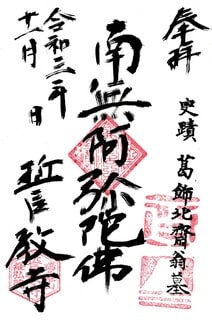 奉拝
史蹟 葛飾北齋翁墓
南無阿弥陀佛
令和三年
月 日
誓教寺